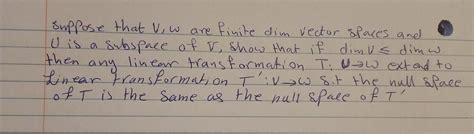 Suppose that V, w are finite dim vector spaces and
U is a subspace of V, Show that if dim V ≤ dim w
then any linear transformation T: U→w extend to
Linear transformation T': V→w s.t the null space
of T is the same as the null space of T'